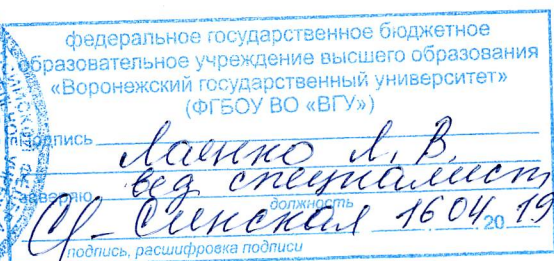 федеральное государственное бюджетное
образовательное учреждение высшего образования
«Воронежский государственный университет»
(ФГБОУ ВО «ВГУ»)
подпись Лаенко Л. В.
заверяю вед специалист
должность
Синская 16 04 20 19
подпись, расшифровка подписи